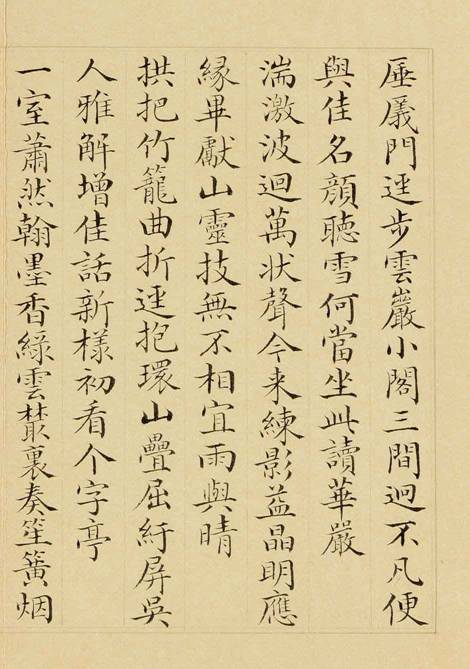 厜㕒門逕步雲巖小閣三間迥不凡便
與佳名顏聽雪何當坐此讀華嚴
湍激波迴萬狀聲今来練影益晶明應
緣畢獻山靈技無不相宜雨與晴
拱把竹籠曲折逕抱環山疊屈紆屏吳
人雅解增佳話新樣初看个字亭
一室蕭然翰墨香綠雲叢裏奏笙簧烟